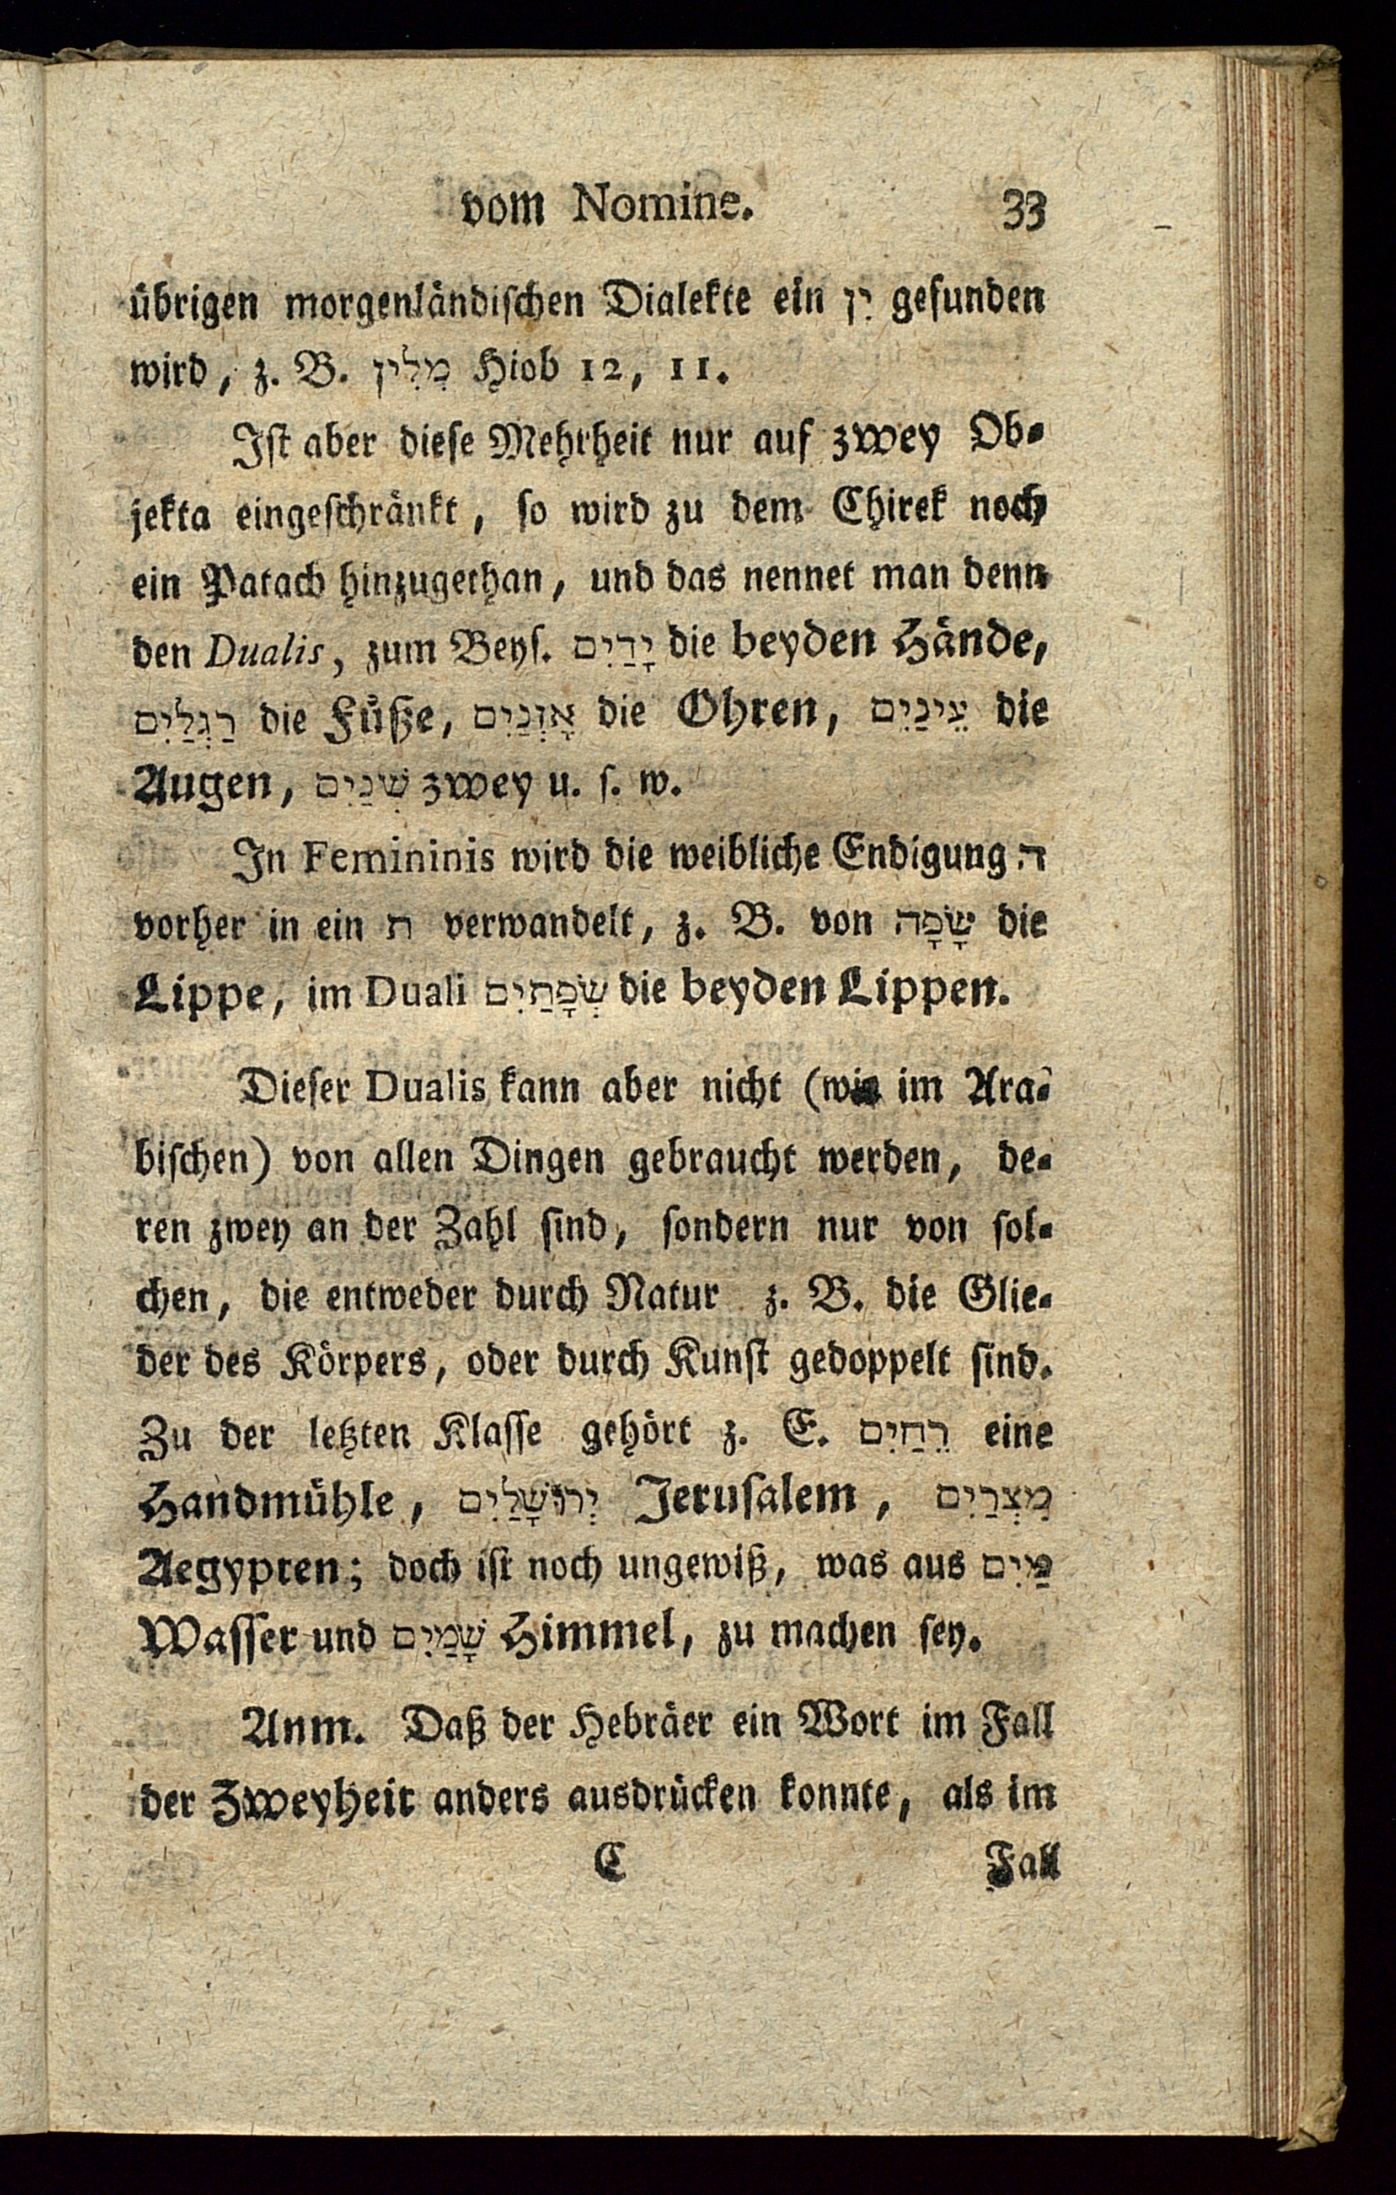 vom Nomine. 33
übrigen morgenländischen Dialekte ein יִן gefunden
wird, z. B. מִלִין Hiob 12, 11.
Ist aber diese Mehrheit nur auf zwey Ob-
jekta eingeschränkt, so wird zu dem Chirek noch
ein Patach hinzugethan, und das nennet man denn
den Dualis, zum Beys. יָדַיִם die beyden Hände,
רַגְלַיִם die Füße, אָזְנַיִם die Ohren, עֵינַיִם die
Augen, שְׁנַיִם zwey u. s. w.
In Femininis wird die weibliche Endigung ה
vorher in ein ת verwandelt, z. B. von שָׂפָה die
Lippe, im Duali שְׂפָתַיִם die beyden Lippen.
Dieser Dualis kann aber nicht (wie im Ara-
bischen) von allen Dingen gebraucht werden, de-
ren zwey an der Zahl sind, sondern nur von sol-
chen, die entweder durch Natur z. B. die Glie-
der des Körpers, oder durch Kunst gedoppelt sind.
Zu der letzten Klasse gehört z. E. רֵחַיִם eine
Handmühle, יְרוּשָׁלַיִם Jerusalem, מִצְרַיִם
Aegypten; doch ist noch ungewiß, was aus מַיִם
Wasser und שָׁמַיִם Himmel, zu machen sey.
Anm. Daß der Hebräer ein Wort im Fall
der Zweyheit anders ausdrücken konnte, als im
C Fall